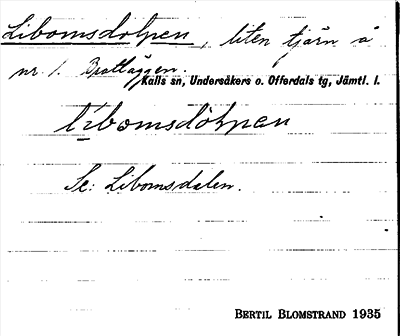 Libomsdolpen, liten tjärn å
nr. 1. Brattläggen.
Kalls sn, Undersåkers o. Offerdals tg, Jämtl. l.
libomsdölpen
Se: Libomsdalen.
BERTIL BLOMSTRAND 1935